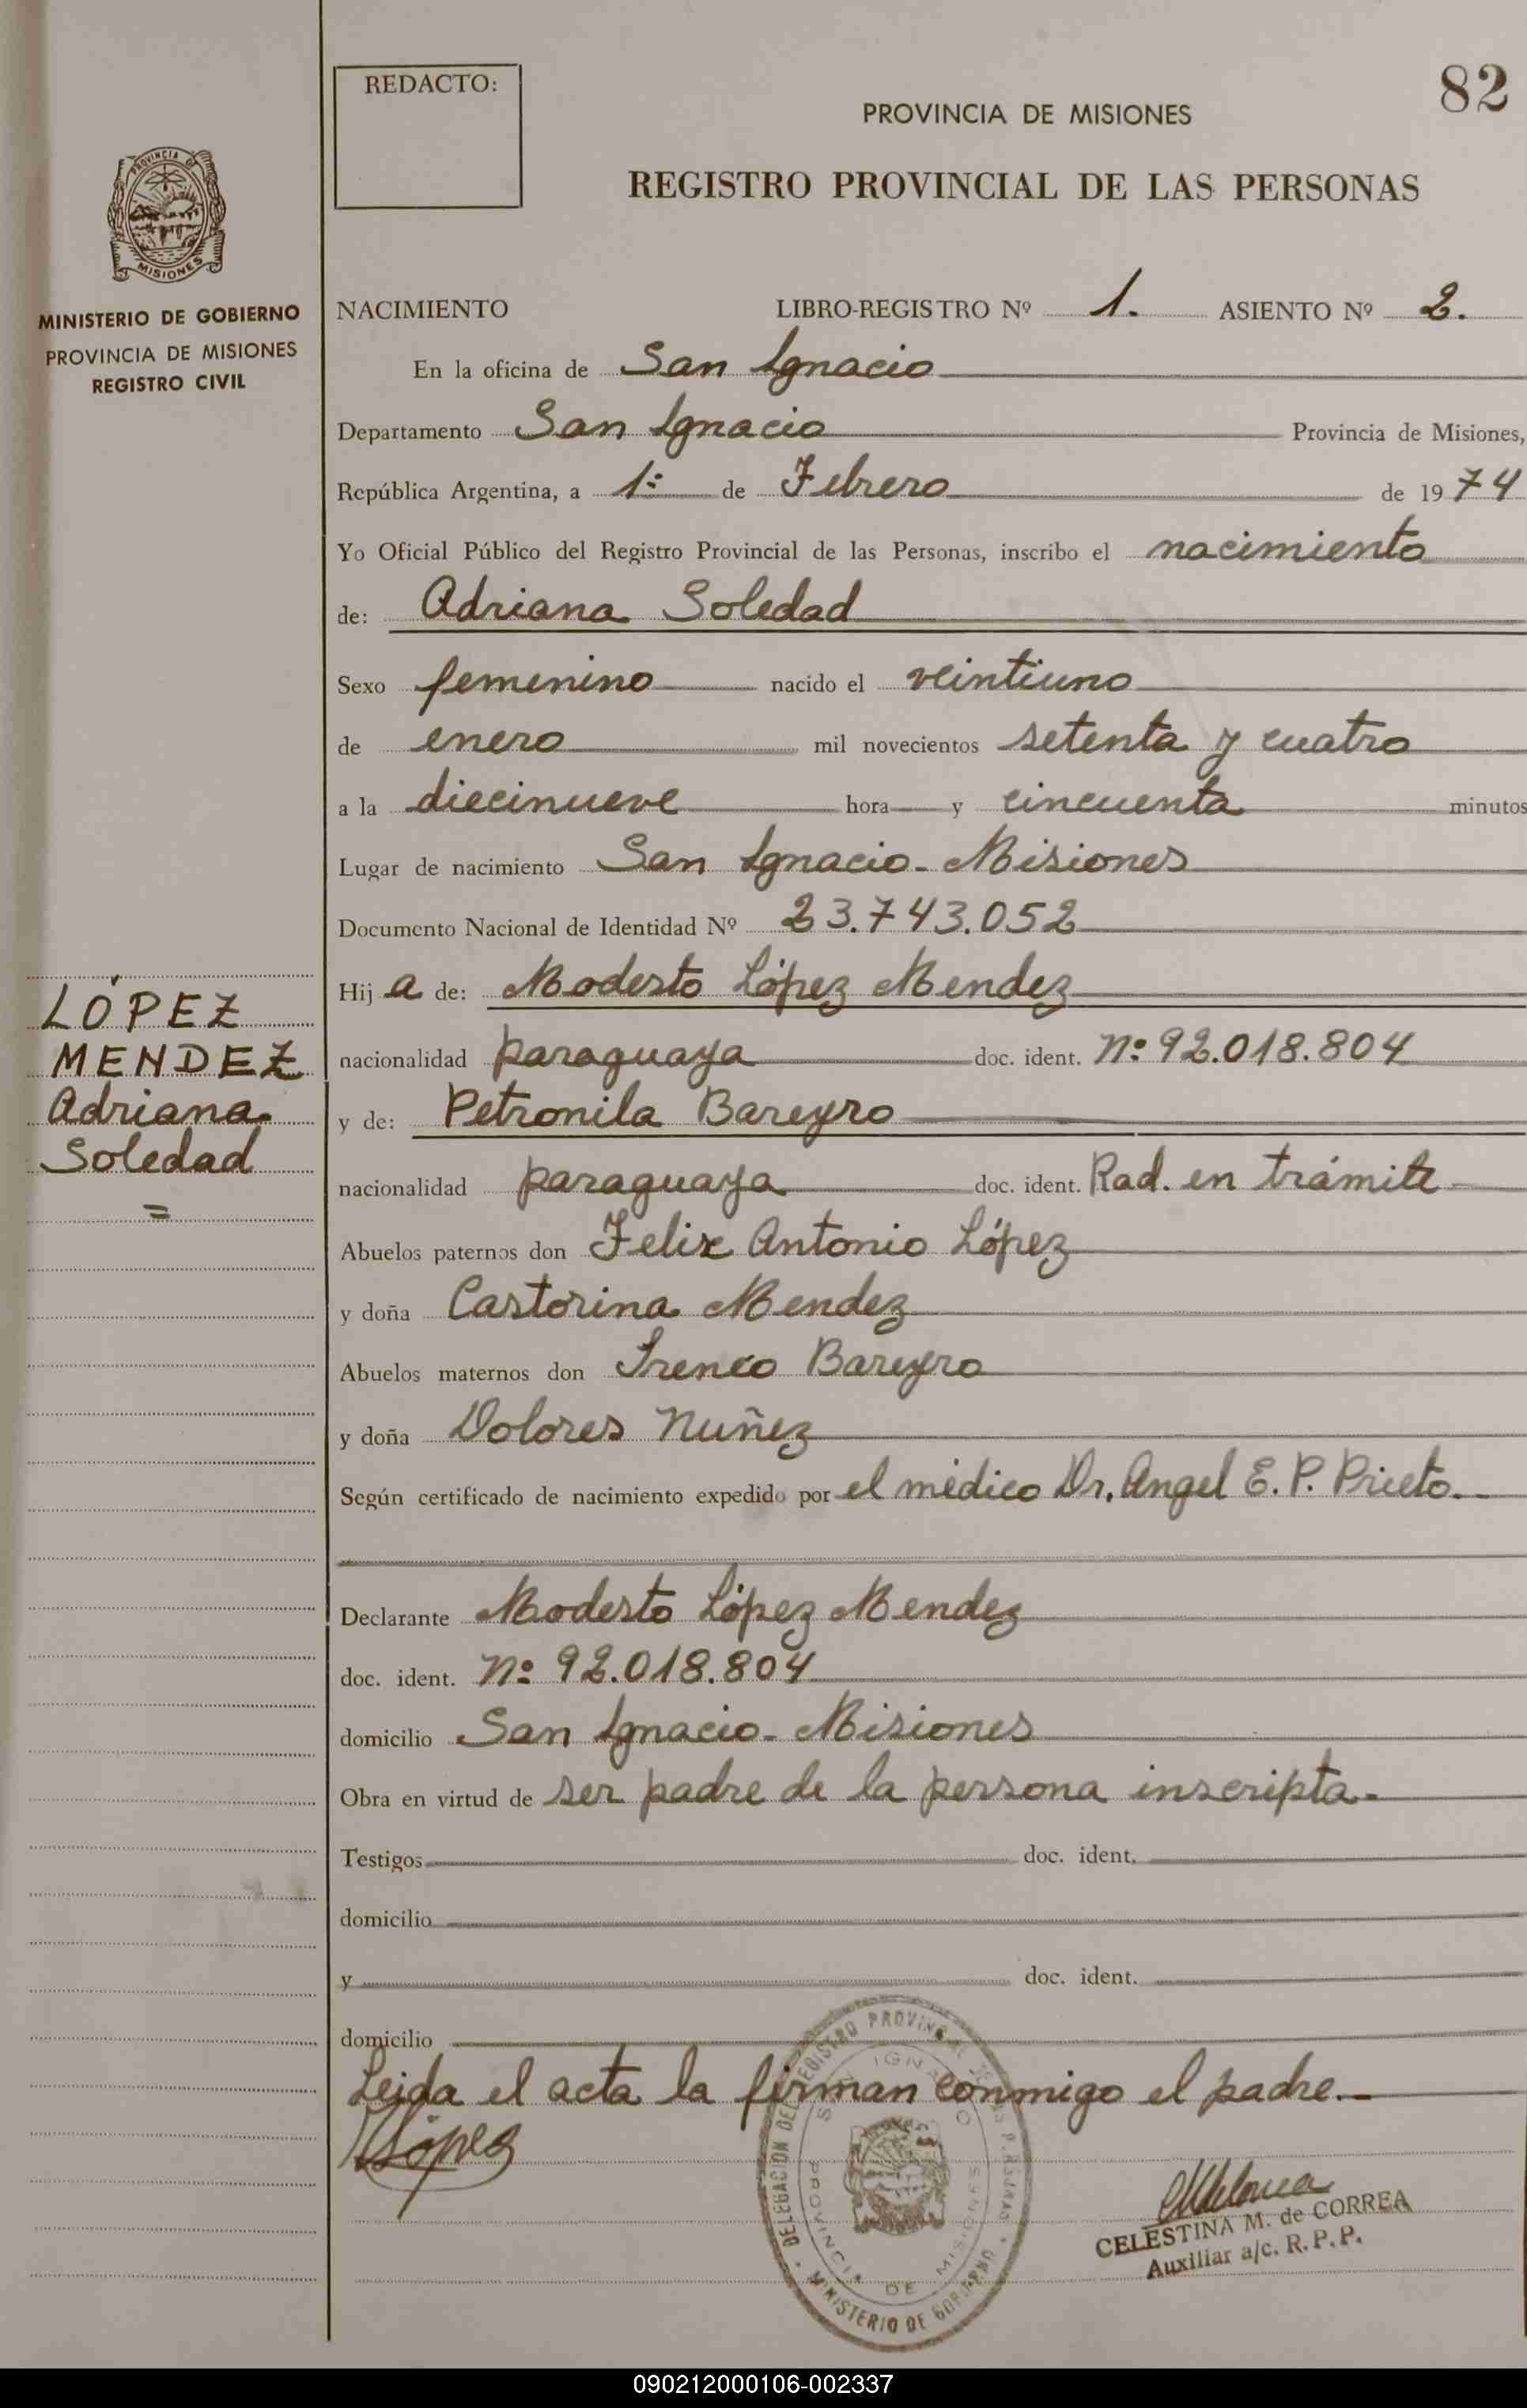 REDACTO:
82
PROVINCIA DE MISIONES
REGISTRO PROVINCIAL DE LAS PERSONAS
PROVINCIA DE
MISIONES
MINISTERIO DE GOBIERNO
PROVINCIA DE MISIONES
REGISTRO CIVIL
NACIMIENTO LIBRO-REGISTRO Nº 1. ASIENTO Nº 2.
En la oficina de San Ignacio
Departamento San Ignacio Provincia de Misiones,
República Argentina, a 1º de Febrero de 1974
Yo Oficial Público del Registro Provincial de las Personas, inscribo el nacimiento
de: Adriana Soledad
Sexo femenino nacido el veintiuno
de enero mil novecientos setenta y cuatro
a la diecinueve hora y cincuenta minutos
Lugar de nacimiento San Ignacio - Misiones
Documento Nacional de Identidad Nº 23.743.052
Hij a de: Modesto López Mendez
nacionalidad paraguaya doc. ident. nº 92.018.804
y de: Petronila Bareyro
nacionalidad paraguaya doc. ident. Rad. en trámite
Abuelos paternos don Felix Antonio López
y doña Castorina Mendez
Abuelos maternos don Ireneo Bareyro
y doña Dolores Nuñez
Según certificado de nacimiento expedido por el médico Dr. Angel E. P. Prieto.
Declarante Modesto López Mendez
doc. ident. nº 92.018.804
domicilio San Ignacio - Misiones
Obra en virtud de ser padre de la persona inscripta.
Testigos doc. ident.
domicilio
y doc. ident.
domicilio
Leida el acta la firman conmigo el padre.
López
LÓPEZ
MENDEZ
Adriana
Soledad
=
DELEGACION DEL REGISTRO PROVINCIAL DE LAS PERSONAS
MINISTERIO DE GOBIERNO
SAN IGNACIO
PROVINCIA DE MISIONES
CELESTINA M. de CORREA
Auxiliar a/c. R. P. P.
090212000106-002337